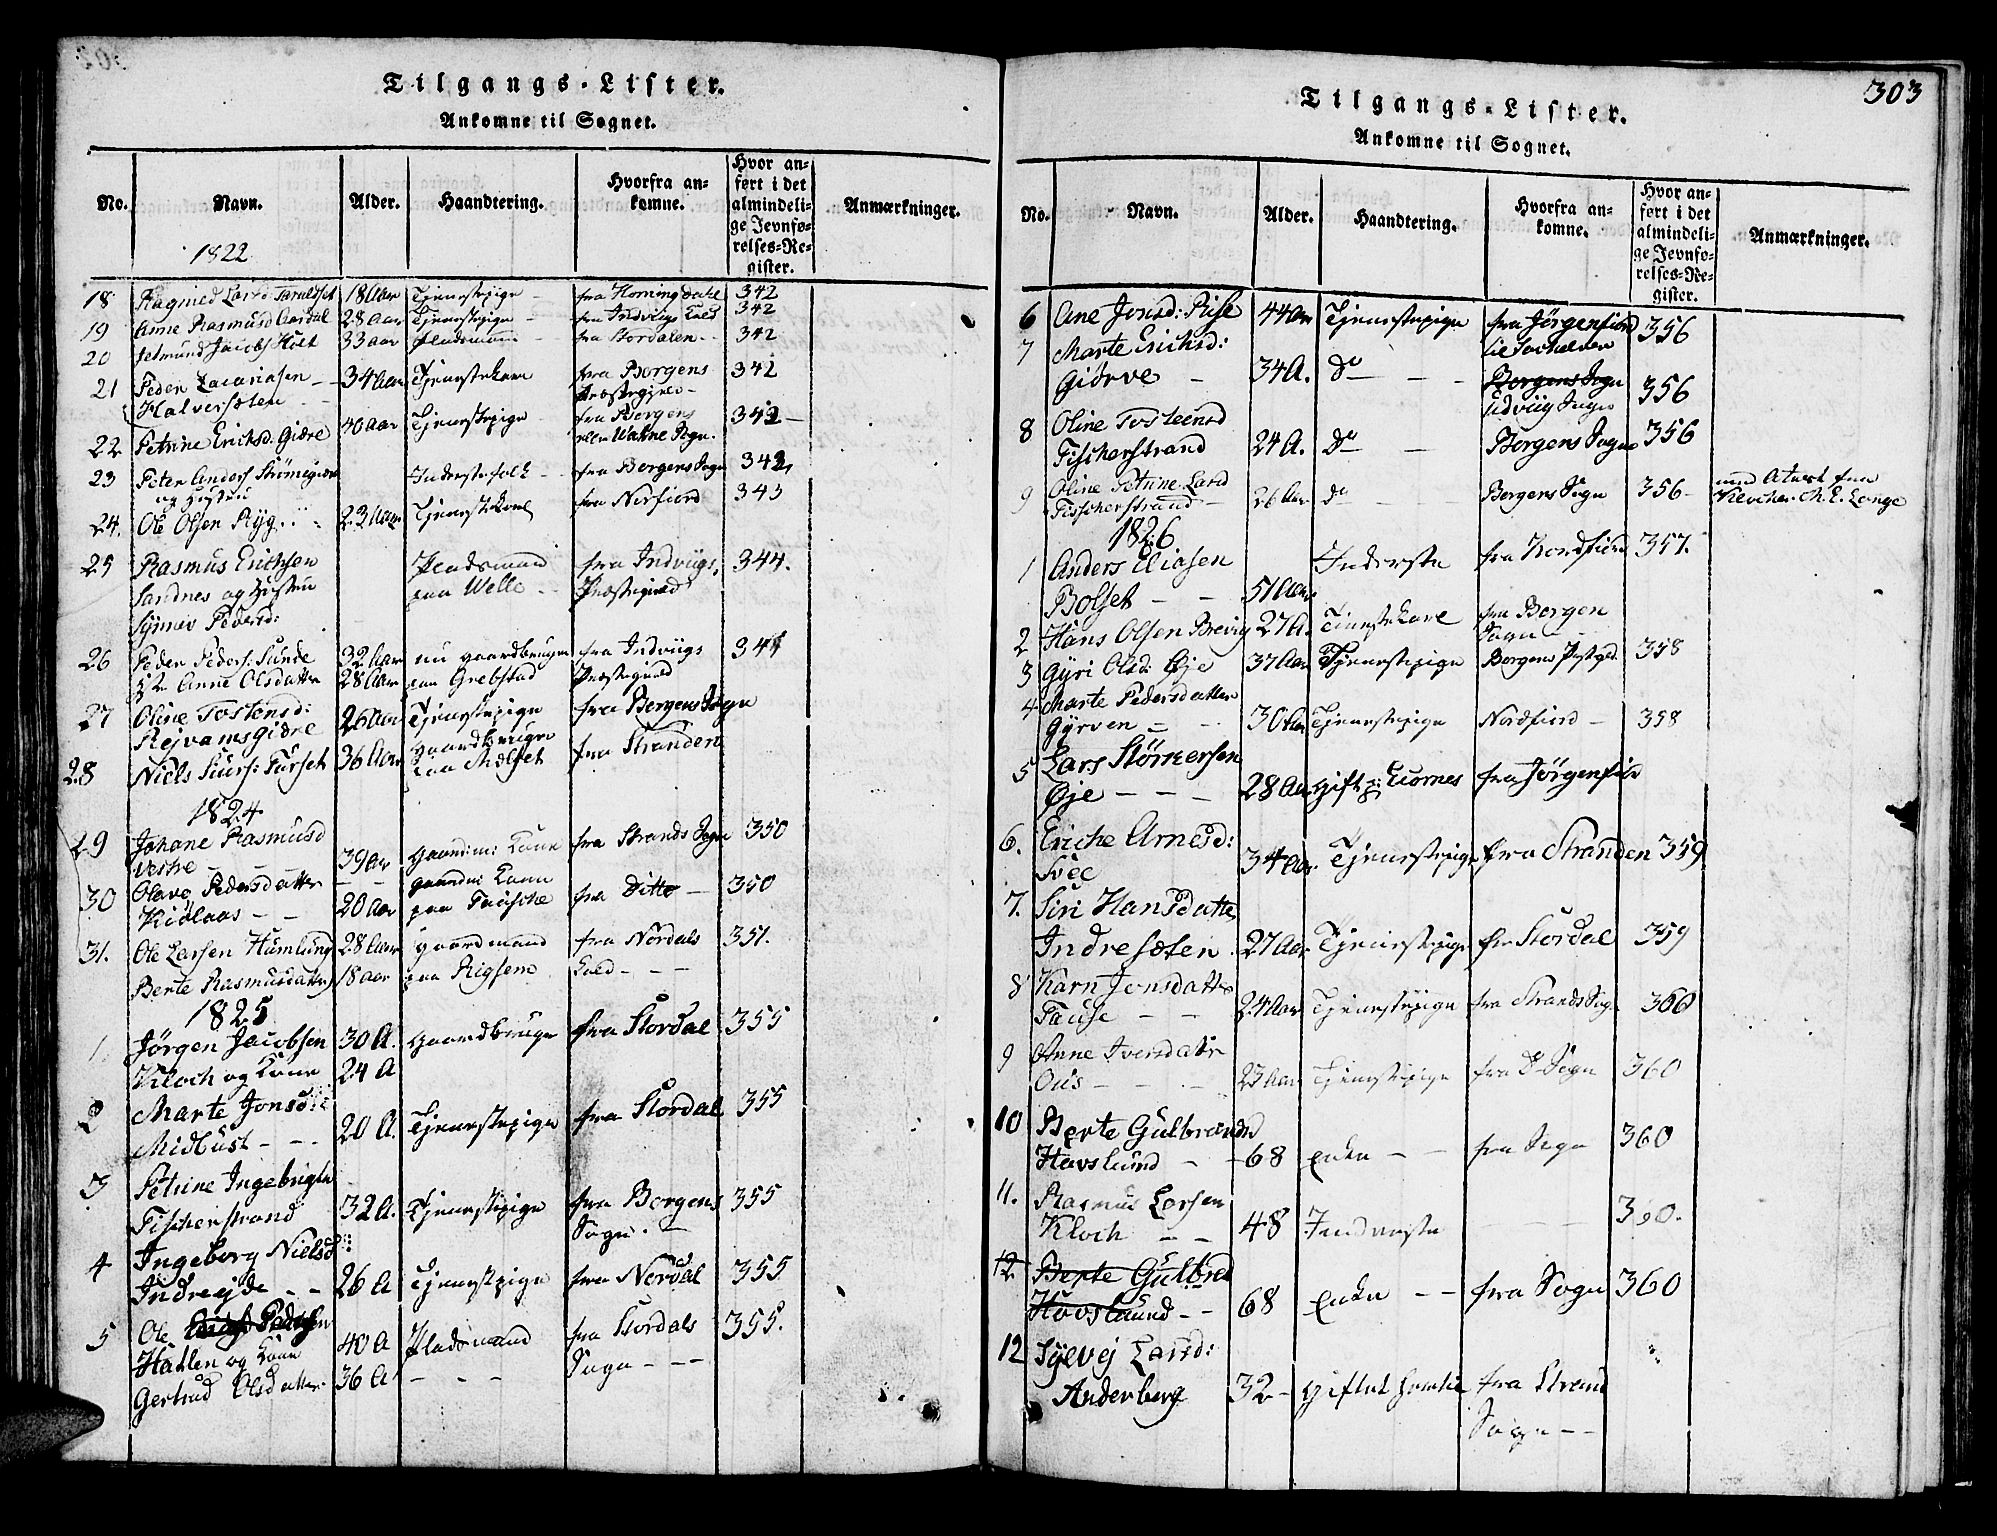 Tilgangs-Lister.
Ankomne til Sognet.
No. Navn. Alder. Haandtering. Hvorfra ankomne. Hvor anført i det almindelige Jevnførelses-Register. Anmærkninger.
1822
18 Ragnild Larsd: 18 Aar Tjenestepige fra Horningdahl 342
19 Anne Rasmusd Aardal 28 Aar Tjenestepige fra Indviigs 342
20 Jetmund Jacobs Holt 33 aar pladsmand fra Stordalen 342
21 Peder Zacariasen 34 Aar Tjenestekarl fra Borgens 342
Halversøten Præstegjeld
22 Petrine Ericksd. Giære 40 Aar Tjenestepige fra Borgens 342
Sogn.
23 Peter Anders Strømegiære Inderstefolk fra Borgens Sogn 342
og Hustru
24. Ole Olsen Ryg 23 Aar Tjenestekarl fra Norfiord 343
25 Rasmus Erichsen Pladsmand fra Indviigs 344.
Sandnes og Hustru paa Welle Præstegield
Synnev Pedersd:
26 Peder Peders: Sunde 32 Aar nu gaardbruger fra Indviigs 344
Anne Olsdatter 28 Aar paa Grebstad Præstegield
27 Oline Tostensd: 26 Aar Tjenestepige fra Bergens Sogn
Rejvamsgiære
28 Niels Siurs: Furset 36 Aar Gaardbruger fra Stranden
paa Melset
1824
29 Johane Rasmusd 39 ar Gaardm: Kone fra Strands Sogn 350
Vestre
30 Olave Pedersdatter 20 aar gaardm: Kone fra Ditto 350
Kidlaas paa
31. Ole Larsen Humlung 28 Aar gaardmand fra Nordals 351.
Berte Rasmusdatter 18 aar paa Rigsem Kald
1825
1 Jørgen Jacobsen 30 A. Gaardbruger fra Stordal 355
Kloch og Kone 24 A
2 Marte Jonsd: 20 A. Tjenestepige fra Stordal 355
Midbust
3 Petrine Ingebrigtsn 32 A. Tjenestepige fra Borgens 355
Fischerstrand Sogn.
4 Ingeborg Nielsd 26 A Tjenestepige fra Nordal 355
Indreejde
5 Ole 40 A Pladsmand fra Stordals 355.
Hatlen og Kone Sogn
Gertrud Olsdatter 36 A
303
Tilgangs-Lister.
Ankomne til Sognet.
No. Navn. Alder. Haandtering. Hvorfra ankomne. Hvor anført i det almindelige Jevnførelses-Register. Anmærkninger.
6 Ane Jonsd: Riise 44 ar Tjenestepige fra Jørgenfiord 356
7 Marte Ericksd: 34 A. Do Borgens Sogn 356
Giørve Udviig Sogn
8 Oline Tosteensd 24 A. Do Borgens Sogn 356
Fischerstrand
9 Oline Petrine Larsd 26 Aar Do Borgens Sogn 356 med Attest fra
Fischerstrand M. E. Lange
1826
1 Anders Eliasen 51 Aar Inderste fra Nordfiord 357.
Bolset
2 Hans Olsen Brevig 27 A. Tienestekarl fra Borgen
Sogn
3 Gyri Olsd: Øje 37 Aar Tjenestepige Borgens Præstgd. 358
4 Marte Pedersdatter 30 Aar Tjenestepige Nordfiord 358
Gyrven
5 Lars Størkersen 28 Aar Gift p: Liornes fra Jørgenfiord
Øje
6. Eriche Arnesd: 34 Aar. Tjenestepige fra Stranden 359
Svee
7. Siri Hansdatter 27 Aar Tjenestepige fra Stordal 359
Indresæten
8 Karn Jonsdatter 24 Aar Tjenestepige fra Strands Sogn 360
Fause
9 Anne Iversdatr 23 Aar Tjenestepige fra D Sogn 360
Ous
10 Berte Gulbrandsd 68 enke fra Sogn 360
Havslund
11. Rasmus Larsen 48 Inderste 360.
Kloch
12 Berte Gulbrd 68 enke fra Sogn 360
Hovslund
12 Sylvej Larsd: 32 Giftet fra Strand
Anderberg Sogn